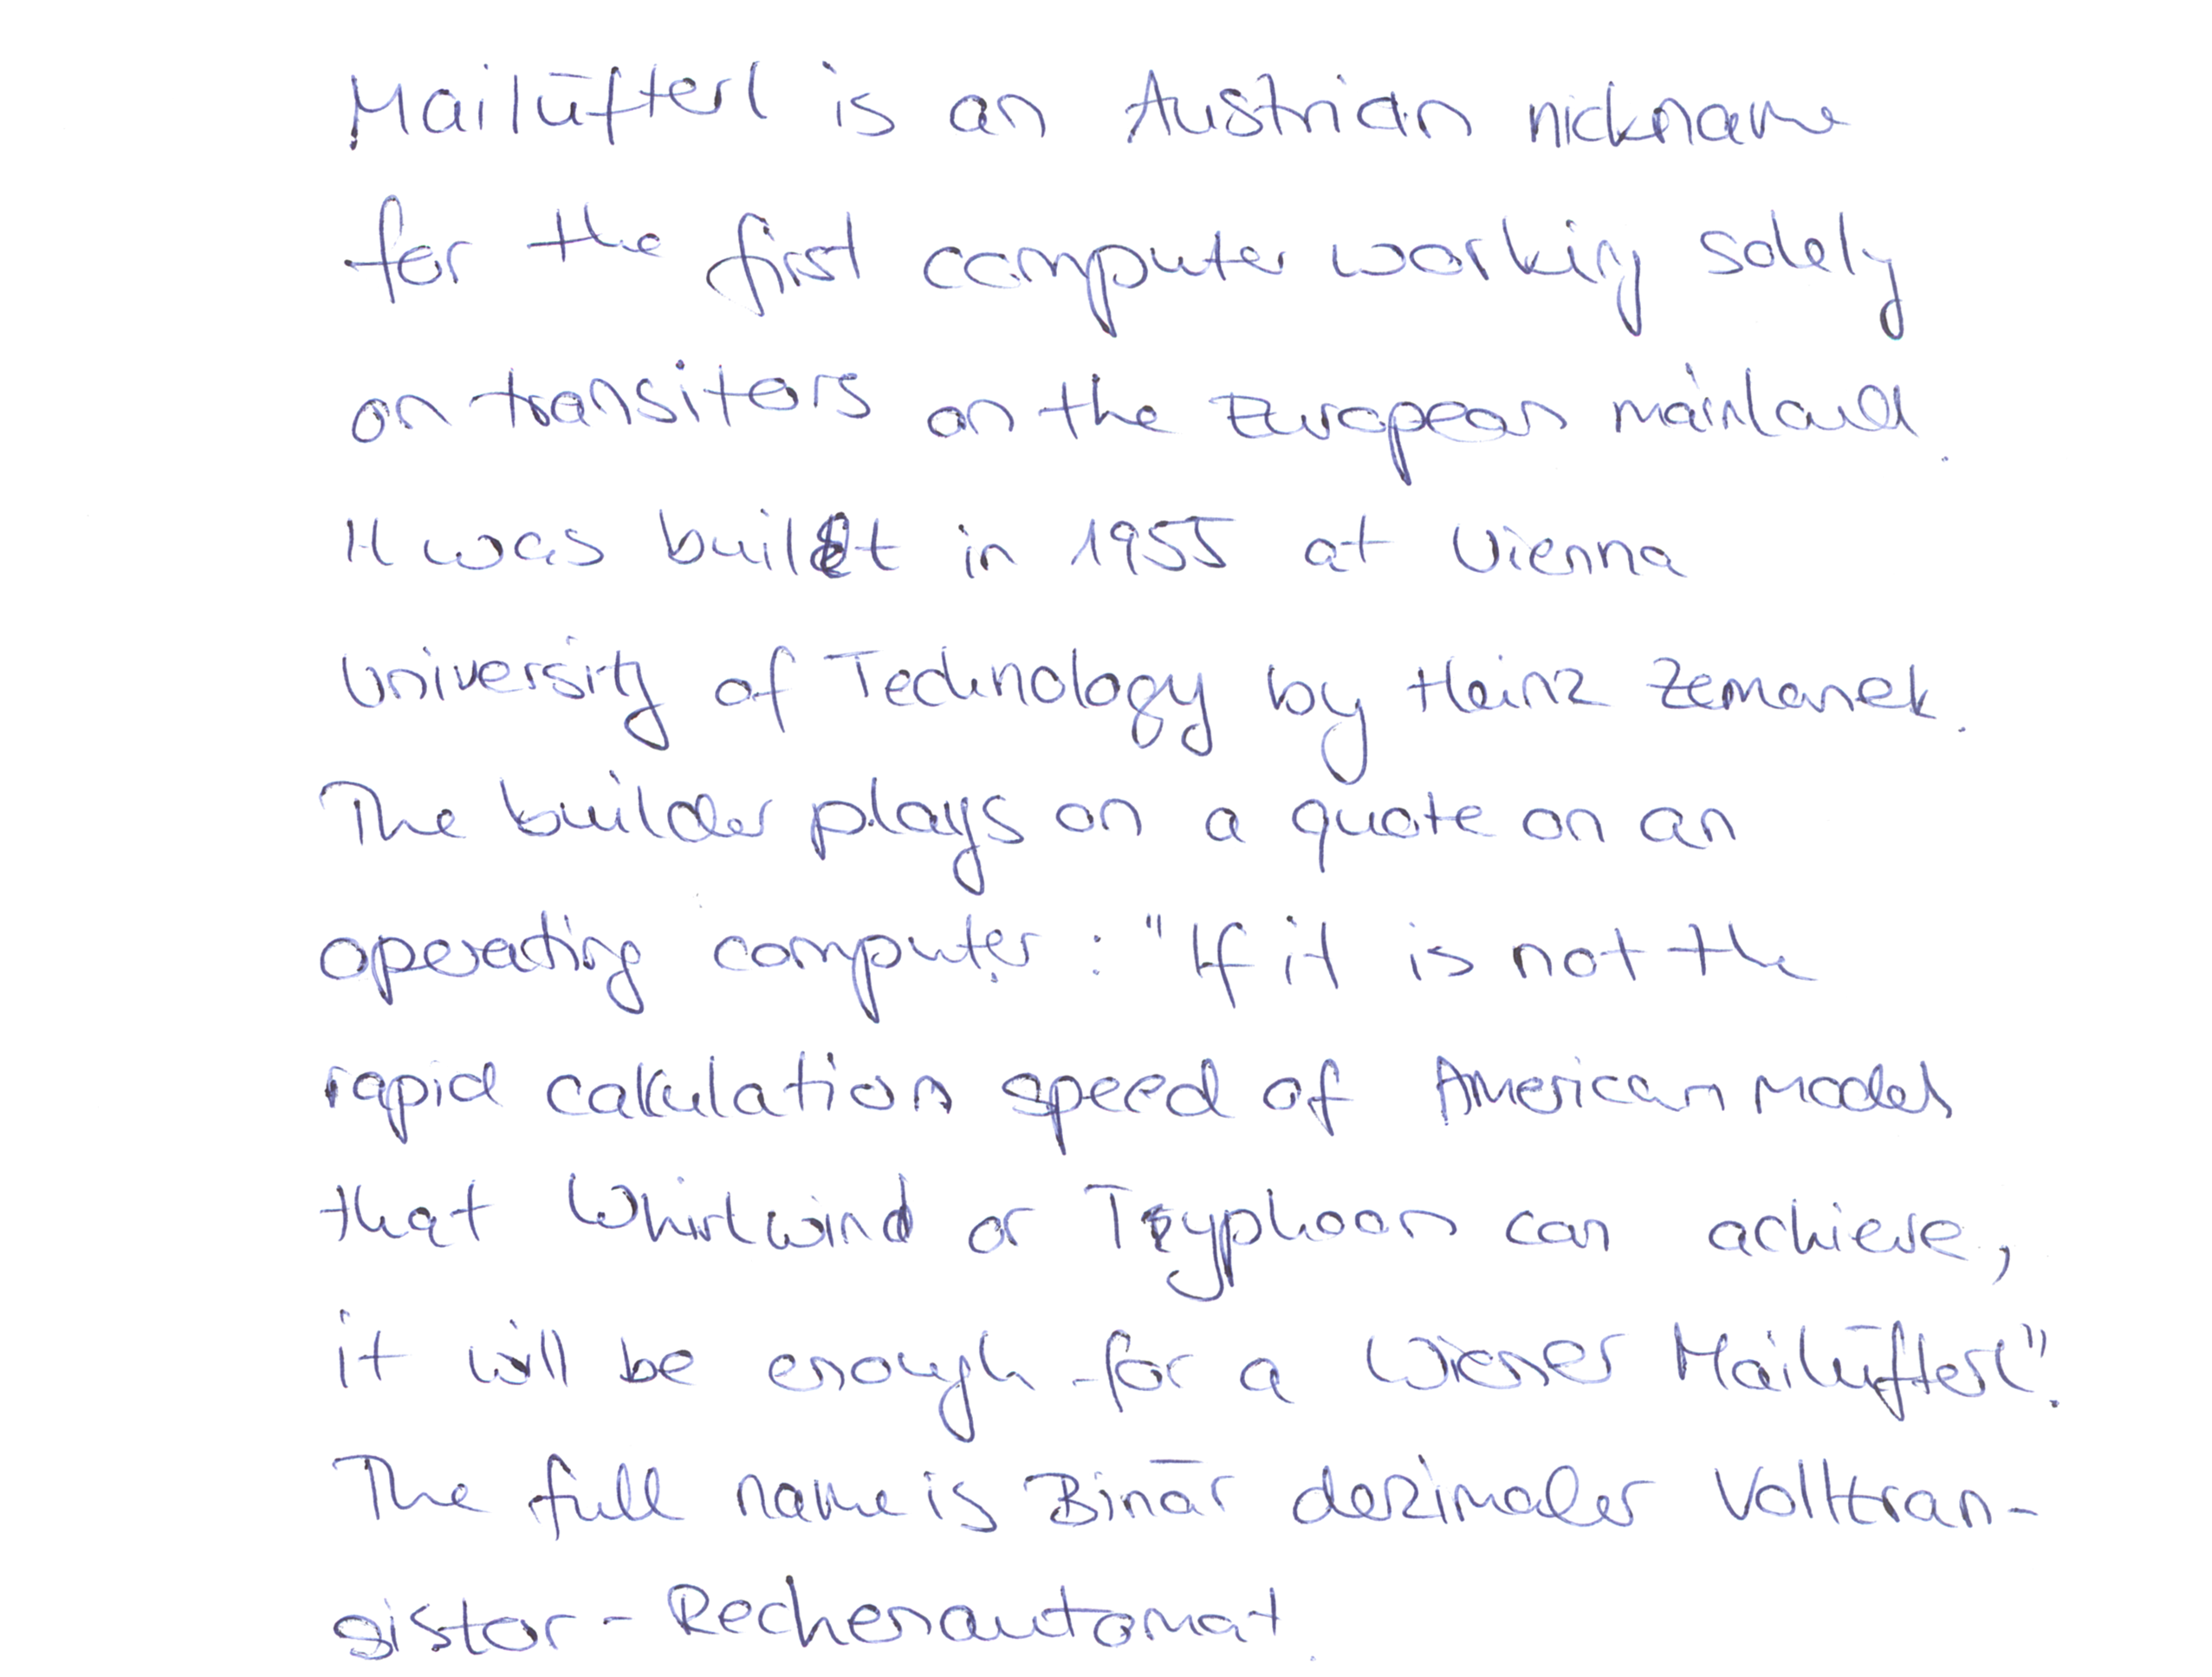 Mailüfterl is an Austrian nickname
for the first computer working solely
on transitors on the European mainland.
It was built in 1955 at Vienna
University of Technology by Heinz Zemanek.
The builder plays on a quote on an
operating computer: "If it is not the
rapid calculation speed of American models
that Whirlwind or Typhoon can achieve,
it will be enough for a Wiener Mailüfterl".
The full name is Binär dezimaler Volltran-
sistor-Rechenautomat.